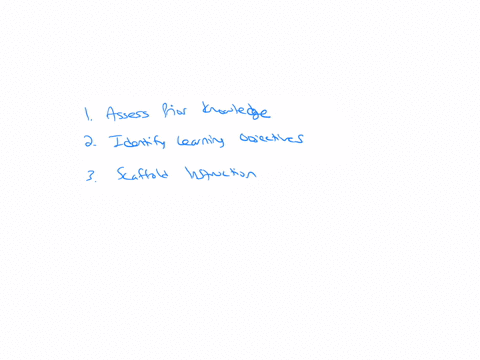 1. Assess Prior Knowledge
2. Identify Learning Objectives
3. Scaffold Instruction